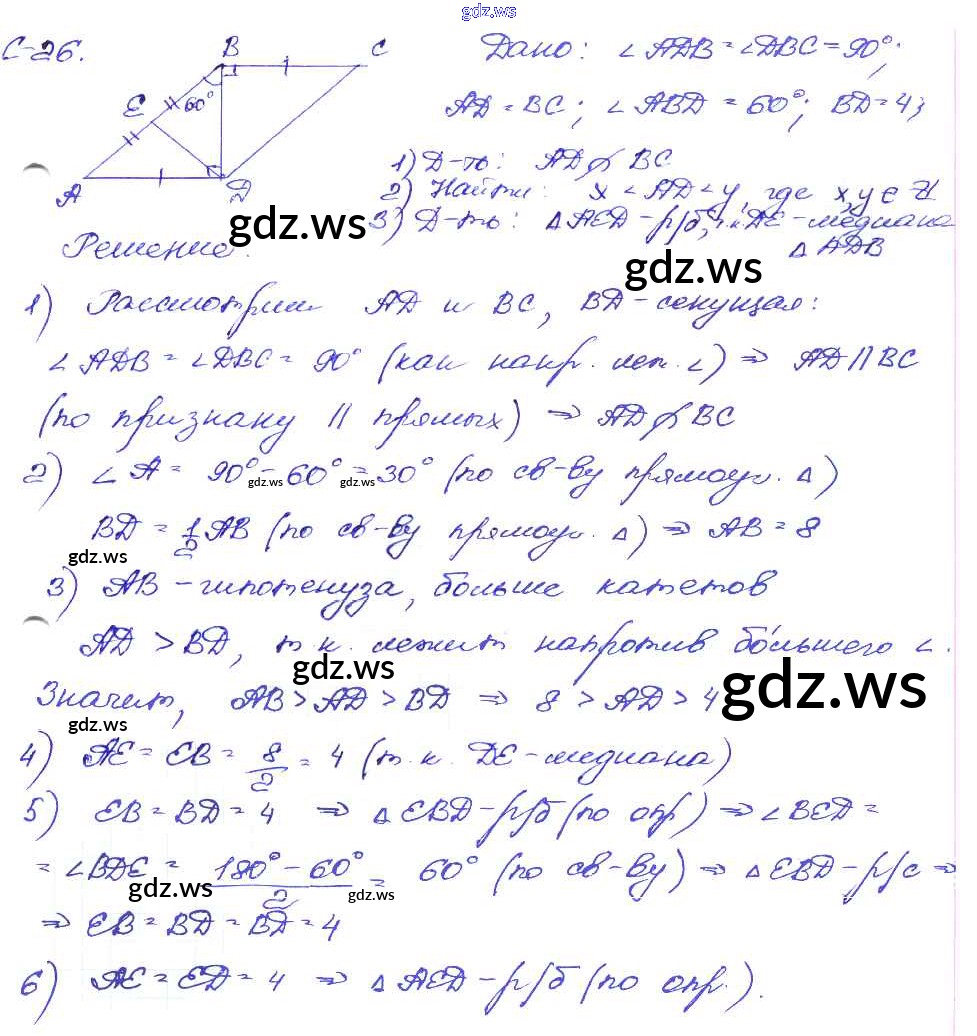 gdz.ws
С-26.
B C
60°
E
A D
Дано: ∠ADB = ∠DBC = 90°;
AD = BC; ∠ABD = 60°; BD = 4;
1) Д-ть: AD ∦ BC
2) Найти: x < AD < y, где x, y ∈ Z
3) Д-ть: △AED - р/б, т.к. DE - медиана
△ADB
gdz.ws
gdz.ws
Решение:
1) Рассмотрим AD и BC, BD - секущая:
∠ADB = ∠DBC = 90° (как накр. леж. ∠) ⇒ AD || BC
(по признаку || прямых) ⇒ AD ∦ BC
2) ∠A = 90° - 60° = 30° (по св-ву прямоуг. △)
gdz.ws gdz.ws
BD = 1/2 AB (по св-ву прямоуг. △) ⇒ AB = 8
gdz.ws
3) AB - гипотенуза, больше катетов
AD > BD, т.к. лежит напротив бóльшего ∠.
gdz.ws gdz.ws
Значит, AB > AD > BD ⇒ 8 > AD > 4
gdz.ws
4) AE = EB = 8/2 = 4 (т.к. DE - медиана)
5) EB = BD = 4 ⇒ △EBD - р/б (по опр) ⇒ ∠BED =
= ∠BDE = (180° - 60°)/2 = 60° (по св-ву) ⇒ △EBD - р/с ⇒
gdz.ws gdz.ws
⇒ EB = BD = BD = 4
6) AE = ED = 4 ⇒ △AED - р/б (по опр.).